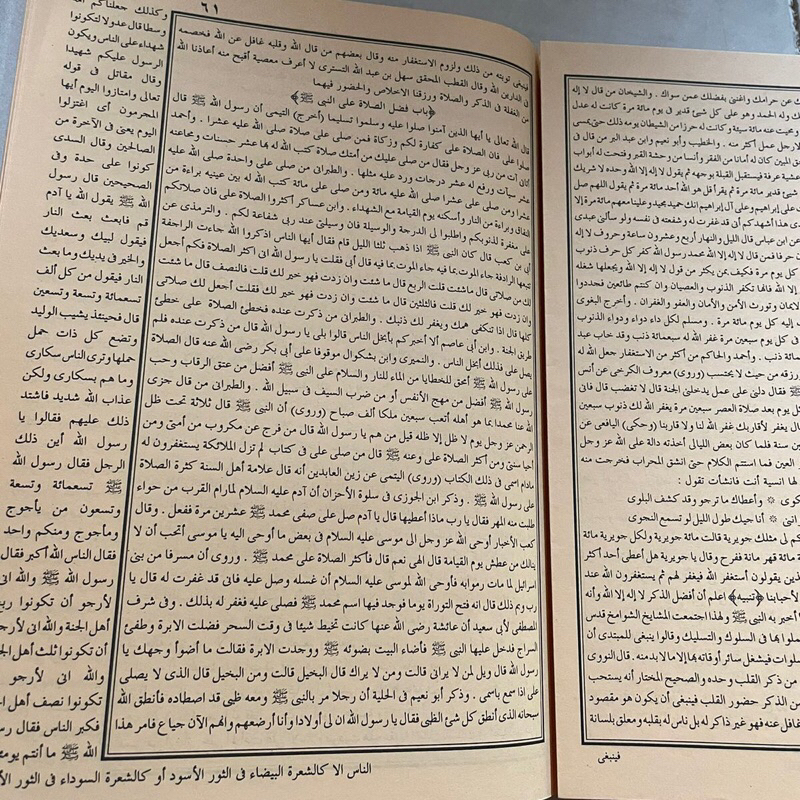 عن حرامك واغننى بفضلك عمن سواك . والشيخان من قال لا إله
ك وله الحمد وهو على كل شئ قدير فى يوم مائة مرة كانت له عدل
ومحيت عنه مائة سيئة وكانت له حرزا من الشيطان يومه ذلك حتى يمسى
لا رجل عمل أكثر منه . والخطيب وأبو نعيم وابن عبد البر من قال فى
ق المبين كان له أمانا من الفقر وأنسا من وحشة القبر وفتحت له أبواب
شئ قدير مائة مرة ثم يقرأ قل هو الله أحد مائة مرة ثم يقول اللهم صل
ت على إبراهيم وعلى آل إبراهيم انك حميد مجيد وعلينا معهم مائة مرة إلا
هذا أشهدكم أنى قد غفرت له وشفعته فى نفسه ولو سألنى عبدى
عن ابن عباس قال الليل والنهار أربع وعشرون ساعة وحروف لا إله
ن حرفا فمن قال لا إله إلا الله محمد رسول الله كفر كل حرف ذنوب
كل يوم مرة فكيف بمن يكثر من قول لا إله إلا الله ويجعلها شغله
إلا الله فإنها تكفر الذنوب والعصيان وان كنتم طائعين فجددوا
لايمان وتورث الأمن والأمان والعفو والغفران . وأخرج البغوى
ب إليه كل يوم مائة مرة . ومسلم لكل داء دواء ودواء الذنوب
فى كل يوم سبعين مرة غفر الله له سبعمائة ذنب وقد خاب عبد
مائة ذنب . أحمد والحاكم من أكثر من الاستغفار جعل الله له
ورزقه من حيث لا يحتسب (وروى) معروف الكرخى عن أنس
ﷺ فقال دلنى على عمل يدخلنى الجنة قال لا تغضب قال فان
كل يوم بعد صلاة العصر سبعين مرة يغفر الله لك ذنوب سبعين
قال يغفر لأقاربك غفر الله لنا ولا قاربنا (وحكى) اليافعى عن
ين سنة فلما كان بعض الليالى أخذته دالة على الله عز وجل
العين فما استتم الكلام حتى انشق المحراب فخرجت منه
لها انسية أنت فانشأت تقول :
كوى * وأعطاك ما ترجو وقد كشف البلوى
انى * أناجيك طول الليل لو تسمع النجوى
كم لى مثلك جويرية قالت مائة جويرية ولكل جويرية مائة
مائة قهر مانة ففرح وقال يا جويرية هل أعطى أحد أكثر
ذين يقولون أستغفر الله فيغفر لهم ثم يستغفرون الله عند
لأحبابنا (تنبيه) اعلم أن أفضل الذكر لا إله إلا الله وأنه
أخبر به النبى ﷺ ولهذا اجتمعت المشايخ الشوامخ قدس
صلوا بها فى السلوك والتسليك وقالوا ينبغى للمبتدى أن
صلوات فيشغل سائر أوقاته بها إلا ما لا بد منه . قال النووى
من ذكر القلب وحده والصحيح المختار أنه يستحب
من الذكر حضور القلب فينبغى أن يكون هو مقصود
غافل عنه فهو غير ذاكر له بل ناس له بقلبه ومعلق بلسانه
فينبغى
٦١
فينبغى توبته من ذلك ولزوم الاستغفار منه وقال بعضهم من قال الله وقلبه غافل عن الله فخصمه
فى الدارين الله وقال القطب المحقق سهل بن عبد الله التسترى لا أعرف معصية أقبح منه أعاذنا الله
من الغفلة فى الذكر والصلاة ورزقنا الاخلاص والحضور فيهما
(باب فضل الصلاة على النبى ﷺ)
قال الله تعالى يا أيها الذين آمنوا صلوا عليه وسلموا تسليما (أخرج) التيمى أن رسول الله ﷺ قال
صلوا على فان الصلاة على كفارة لكم وزكاة فمن صلى على صلاة صلى الله عليه عشرا . وأحمد
أتانى آت من ربى عز وجل فقال من صلى عليك من أمتك صلاة كتب الله له بها عشر حسنات ومحا عنه
عشر سيآت ورفع له عشر درجات ورد عليه مثلها . والطبرانى من صلى على واحدة صلى الله عليه
عشرا ومن صلى على عشرا صلى الله عليه مائة ومن صلى على مائة كتب الله له بين عينيه براءة من
النفاق وبراءة من النار وأسكنه يوم القيامة مع الشهداء . وابن عساكر أكثروا الصلاة على فان صلاتكم
على مغفرة لذنوبكم واطلبوا لى الدرجة والوسيلة فان وسيلتى عند ربى شفاعة لكم . والترمذى عن
أبى بن كعب قال كان النبى ﷺ اذا ذهب ثلثا الليل قام فقال أيها الناس اذكروا الله جاءت الراجفة
تتبعها الرادفة جاء الموت بما فيه جاء الموت بما فيه قال أبى فقلت يا رسول الله انى أكثر الصلاة فكم أجعل
لك من صلاتى قال ما شئت قلت الربع قال ما شئت وان زدت فهو خير لك قلت فالنصف قال ما شئت
وان زدت فهو خير لك قلت فالثلثين قال ما شئت وان زدت فهو خير لك فقلت أجعل لك صلاتى
كلها قال اذا تكفى همك ويغفر لك ذنبك . والطبرانى من ذكرت عنده فخطئ الصلاة على خطئ
طريق الجنة . وابن أبى عاصم ألا أخبركم بأبخل الناس قالوا بلى يا رسول الله قال من ذكرت عنده فلم
يصل على فذلك أبخل الناس . والنميرى وابن بشكوال موقوفا على أبى بكر رضى الله عنه قال الصلاة
على رسول الله ﷺ أمحق للخطايا من الماء للنار والسلام على النبى ﷺ أفضل من عتق الرقاب وحب
رسول الله ﷺ أفضل من مهج الأنفس أو من ضرب السيف فى سبيل الله . والطبرانى من قال جزى
الله عنا محمدا بما هو أهله أتعب سبعين ملكا ألف صباح (وروى) أن النبى ﷺ قال ثلاثة تحت ظل
الرحمن عز وجل يوم لا ظل إلا ظله قيل من هم يا رسول الله قال من فرج عن مكروب من أمتى ومن
أحيا سنتى ومن أكثر الصلاة على وعنه ﷺ قال من صلى على فى كتاب لم تزل الملائكة يستغفرون له
مادام اسمى فى ذلك الكتاب (وروى) التيمى عن زين العابدين أنه قال علامة أهل السنة كثرة الصلاة
على رسول الله ﷺ . وذكر ابن الجوزى فى سلوة الأحزان أن آدم عليه السلام لما رام القرب من حواء
طلبت منه المهر فقال يا رب ماذا أعطيها قال يا آدم صل على صفى محمد ﷺ عشرين مرة ففعل . وقال
كعب الأخبار أوحى الله عز وجل الى موسى عليه السلام فى بعض ما أوحى اليه يا موسى أتحب أن لا
ينالك من عطش يوم القيامة قال الهى نعم قال فأكثر الصلاة على محمد ﷺ . وروى أن مسرفا من بنى
اسرائيل لما مات رموابه فأوحى الله لموسى عليه السلام أن غسله وصل عليه فانى قد غفرت له قال يا
رب وبم ذلك قال انه فتح التوراة يوما فوجد فيها اسم محمد ﷺ فصلى عليه فغفر له بذلك . وفى شرف
المصطفى لأبى سعيد أن عائشة رضى الله عنها كانت تخيط شيئا فى وقت السحر فضلت الابرة وطفئ
السراج فدخل عليها النبى ﷺ فأضاء البيت بضوئه ﷺ ووجدت الابرة فقالت ما أضوأ وجهك يا
رسول الله قال ويل لمن لا يرانى قالت ومن لا يراك قال البخيل قالت ومن البخيل قال الذى لا يصلى
على اذا سمع باسمى . وذكر أبو نعيم فى الحلية أن رجلا مر بالنبى ﷺ ومعه ظبى قد اصطاده فأنطق الله
سبحانه الذى أنطق كل شئ الظبى فقال يا رسول الله ان لى أولادا وأنا أرضعهم وانهم الآن جياع فامر هذا
وكذلك جعلناكم أمة
وسطا قال عدولا لتكونوا
شهداء على الناس ويكون
الرسول عليكم شهيدا
وقال مقاتل فى قوله
تعالى وامتازوا اليوم أيها
المجرمون أى اغتزلوا
اليوم يعنى فى الآخرة من
الصالحين وقال السدى
كونوا على حدة وفى
الصحيحين قال رسول
الله ﷺ يقول الله يا آدم
قم فابعث بعث النار
فيقول لبيك وسعديك
والخير فى يديك وما بعث
النار فيقول من كل ألف
تسعمائة وتسعة وتسعين
قال فحينئذ يشيب الوليد
وتضع كل ذات حمل
حملها وترى الناس سكارى
وما هم بسكارى ولكن
عذاب الله شديد فاشتد
ذلك عليهم فقالوا يا
رسول الله أين ذلك
الرجل فقال رسول الله
ﷺ تسعمائة وتسعة
وتسعون من يأجوج
ومأجوج ومنكم واحد
فقال الناس الله أكبر فقال
رسول الله ﷺ والله انى
لأرجو أن تكونوا ربع
أهل الجنة والله انى لأرجو
أن تكونوا ثلث أهل الجنة
والله انى لأرجو
تكونوا نصف أهل
فكبر الناس فقال رسول
الله ﷺ ما أنتم يومئذ
الناس الا كالشعرة البيضاء فى الثور الأسود أو كالشعرة السوداء فى الثور